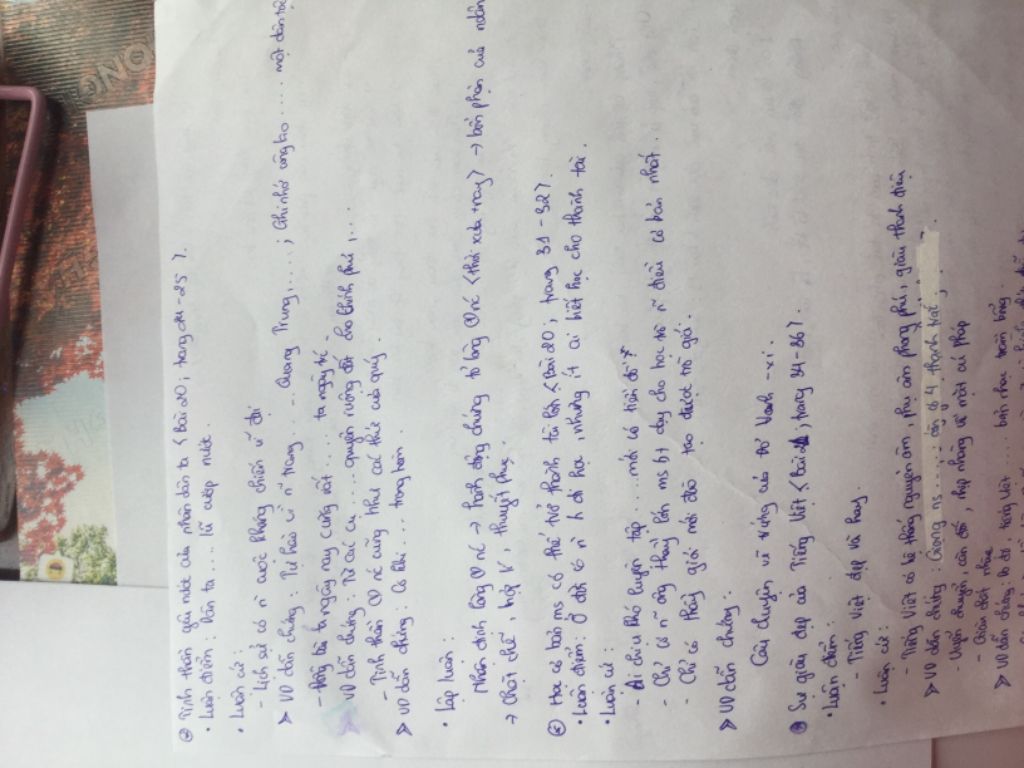 Tinh thần yêu nước của nhân dân ta < Bài 20; trang 24-25 >.
• Luận điểm: Dân ta .... lũ cướp nước.
• Luận cứ:
- Lịch sử có n cuộc kháng chiến vĩ đại
➤ VD dẫn chứng: Tự hào vì n trang .... Quang Trung,...; Ghi nhớ công lao .... một dân tộc
- Đồng bào ta ngày nay cũng rất .... ta ngày trc.
➤ VD dẫn chứng: Từ các cụ ..... quyên ruộng đất cho Chính phủ,...
- Tinh thần yêu nc cũng như các thứ của quý.
➤ VD dẫn chứng: Có khi .... trong hòm.
• Lập luận:
Nhận định lòng nc → hành động chứng tỏ lòng nc < thời xưa + nay > → bổn phận của
→ Chặt chẽ, hợp lí, thuyết phục.
Học cơ bản ms có thể trở thành tài lớn < Bài 20; trang 31-32 >.
• Luận điểm: Ở đời có n h đi học, nhưng ít ai biết học cho thành tài.
• Luận cứ:
- Ai chịu khó luyện tập .... mới có tiền đồ.
- Chỉ có n ông thầy lớn ms bt dạy cho học trò n điều cơ bản nhất.
- Chỉ có thầy giỏi mới đào tạo được trò giỏi.
➤ VD dẫn chứng:
Câu chuyện vẽ trứng của
Sự giàu đẹp của Tiếng Việt < Bài 21; trang 34-36 >.
• Luận điểm:
- Tiếng Việt đẹp và hay.
• Luận cứ:
- Tiếng Việt có hệ thống nguyên âm, phụ âm phong phú, giàu thanh điệu
➤ VD dẫn chứng: Giọng ns ..... có 4 thanh trắc
- Uyển chuyển, cân đối, nhịp nhàng về mặt cú pháp
- Giàu chất nhạc
➤ VD dẫn chứng: tiếng Việt .... bản nhạc trầm bổng.